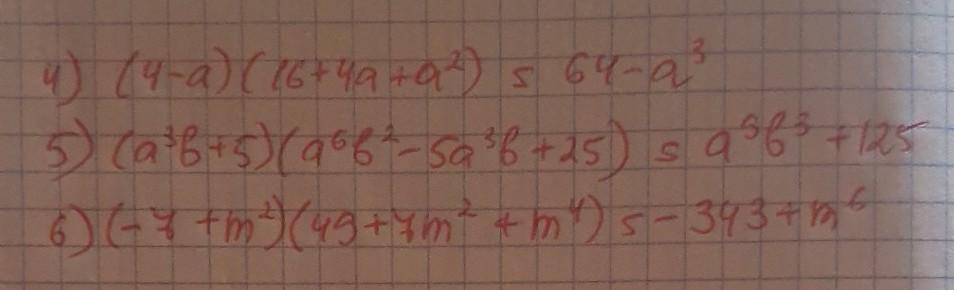 4) (4-a)(16+4a+a²) = 64-a³
5) (a³b+5)(a⁶b²-5a³b+25) = a⁹b³+125
6) (-7+m²)(49+7m²+m⁴) = -343+m⁶